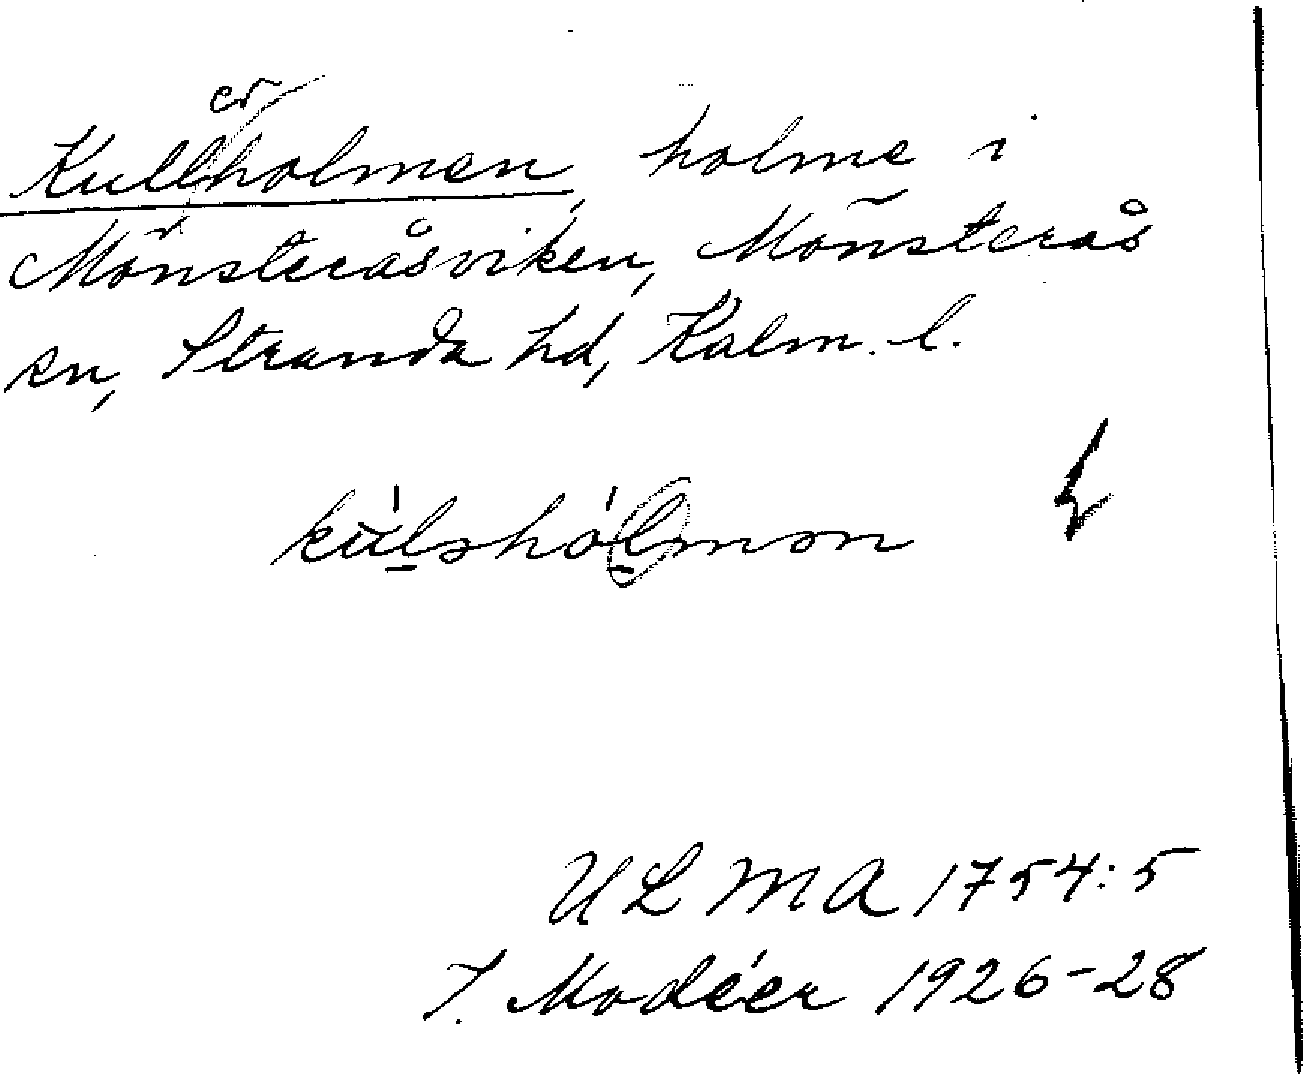 er
Kullholmen, holme i
Mönsteråsviken, Mönsterås
sn, Stranda hd, Kalm. l.
ULMA 1754:5
I. Modéer 1926-28